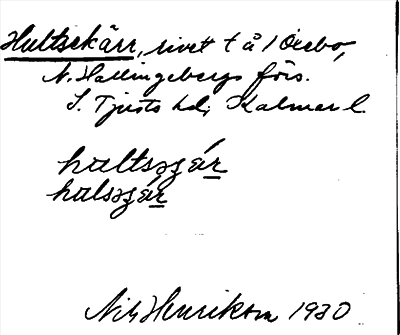 Hultsekärr, rivet t å 1 Örebo,
N. Hallingebergs förs.
S. Tjusts hd, Kalmar l.
haltsəʒár
halsəʒár
Nils Henrikson 1930